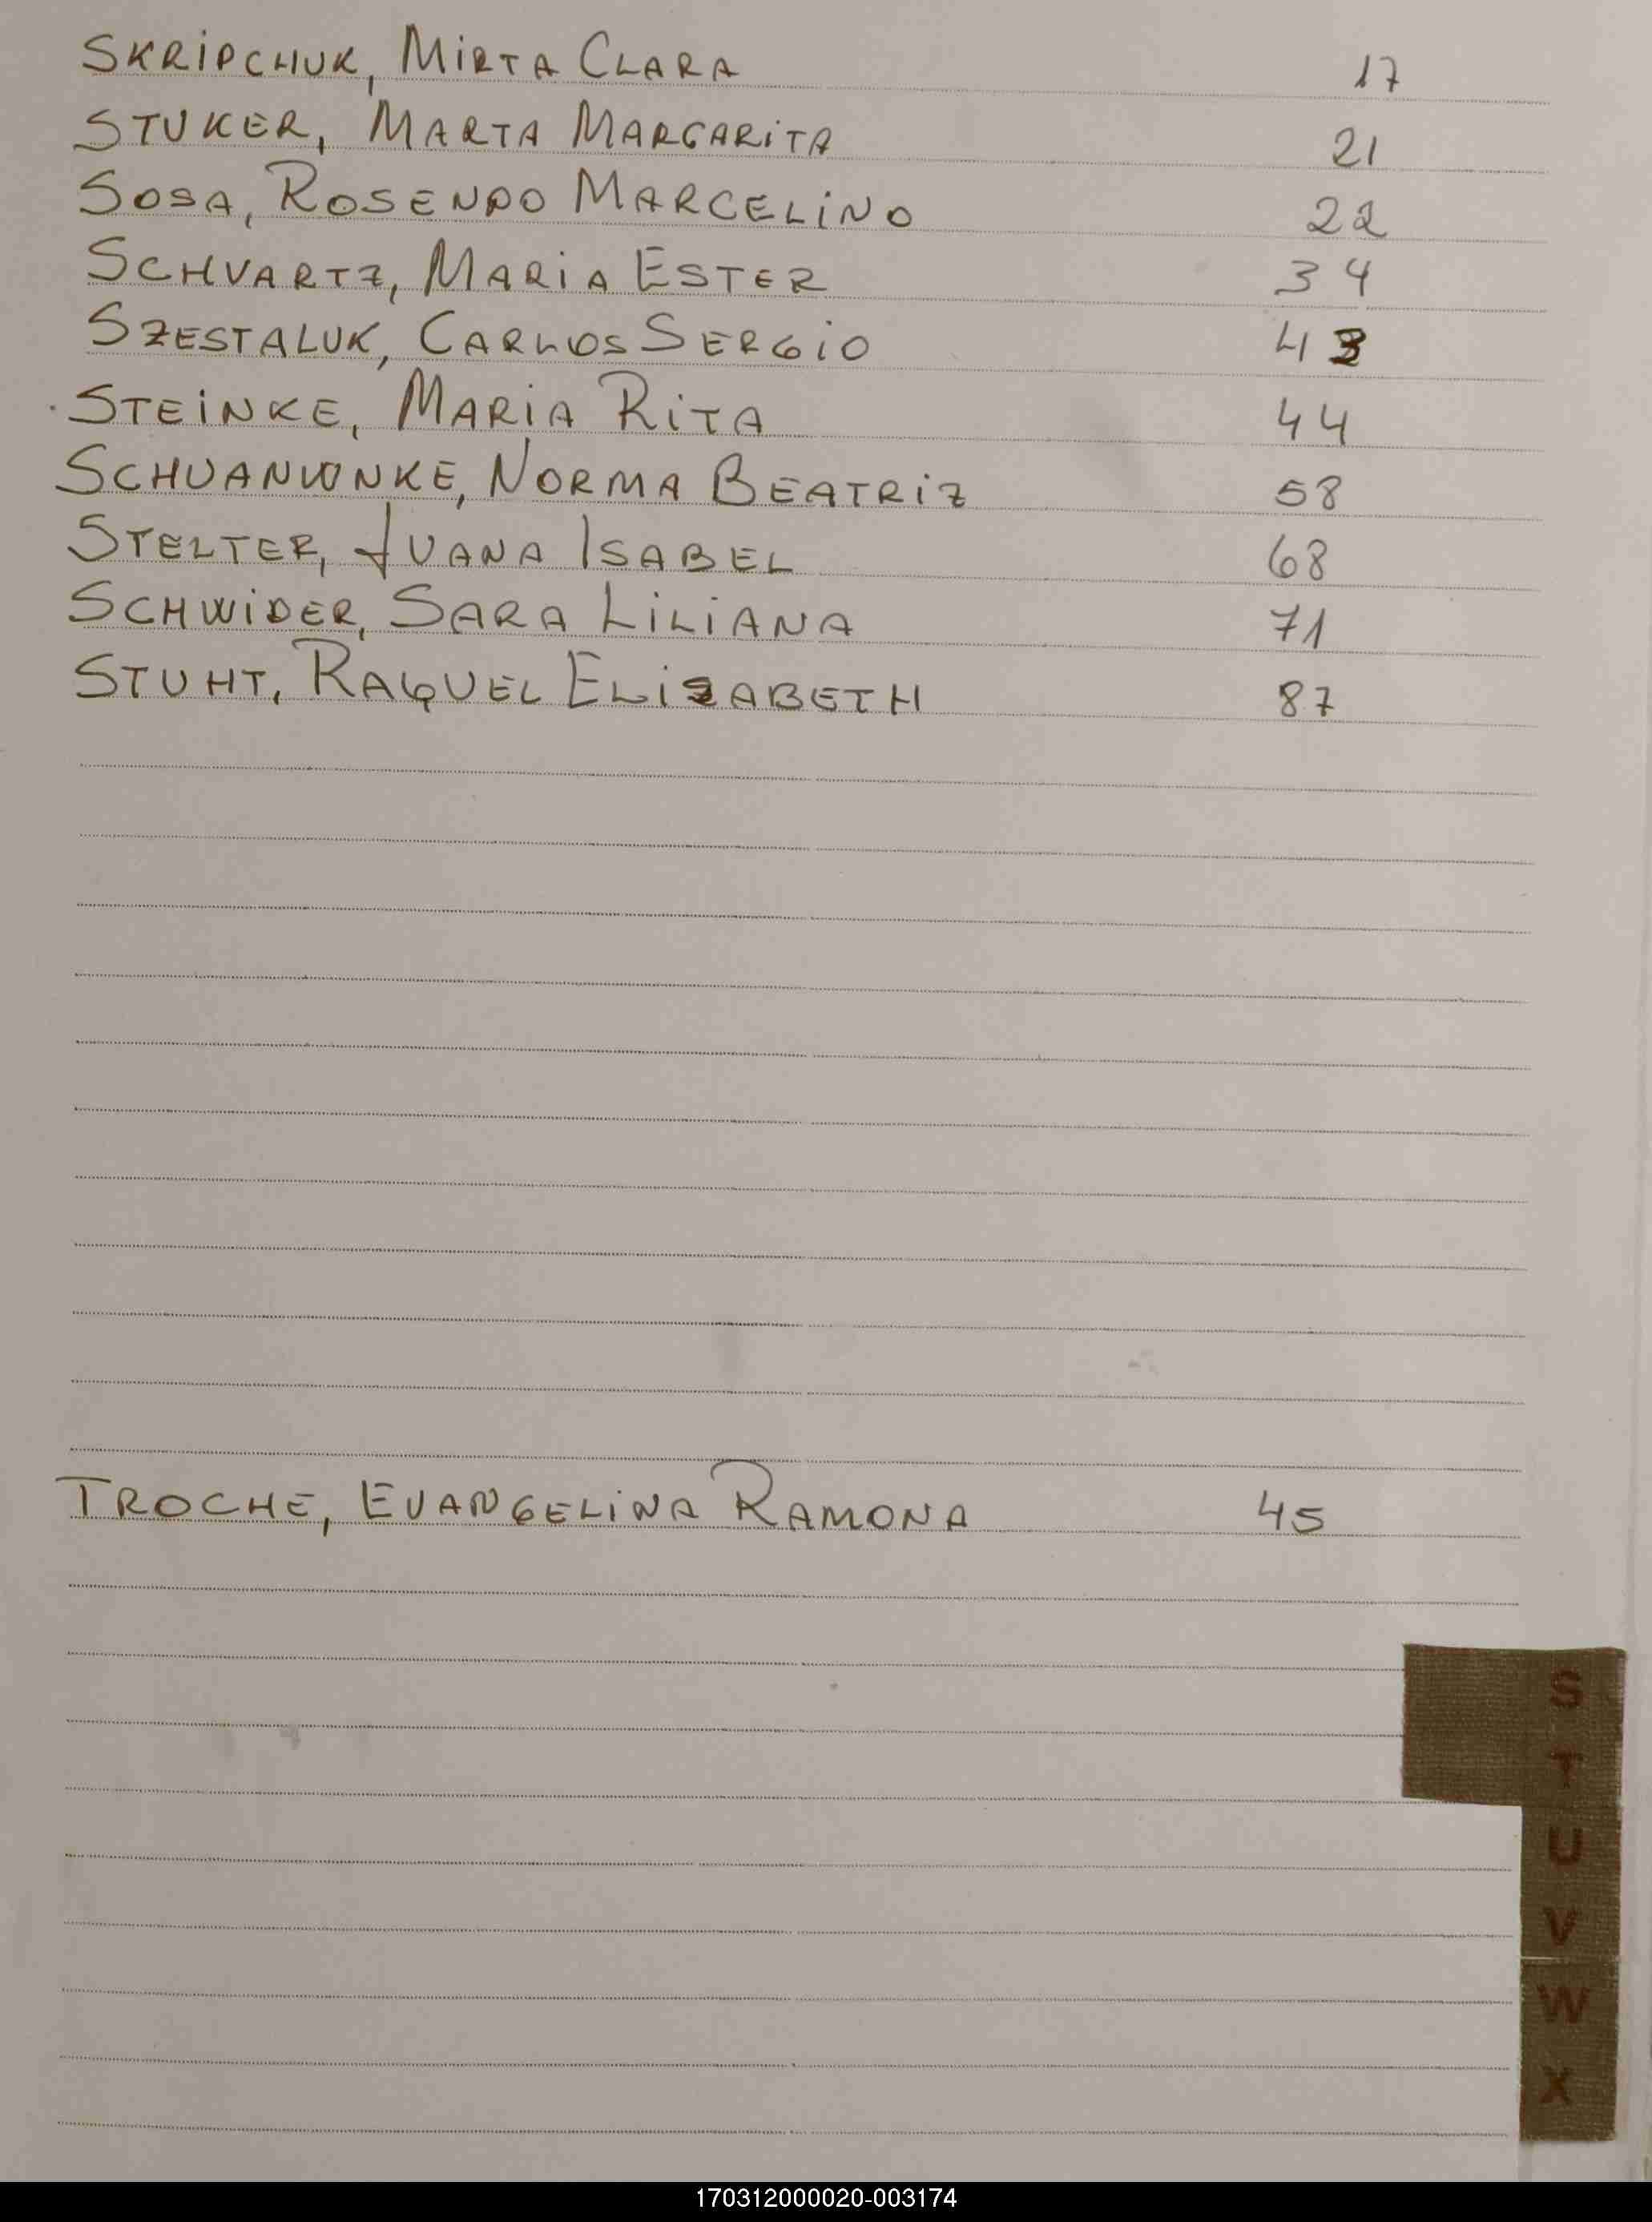 SKRIPCHUK, MIRTA CLARA 17
STUKER, MARTA MARGARITA 21
SOSA, ROSENDO MARCELINO 22
SCHVARTZ, MARIA ESTER 34
SZESTALUK, CARLOS SERGIO 43
STEINKE, MARIA RITA 44
SCHUANWNKE, NORMA BEATRIZ 58
STELTER, JUANA ISABEL 68
SCHWIDER, SARA LILIANA 71
STUHT, RAQUEL ELIZABETH 87
TROCHE, EVANGELINA RAMONA 45
S
T
U
V
W
X
170312000020-003174